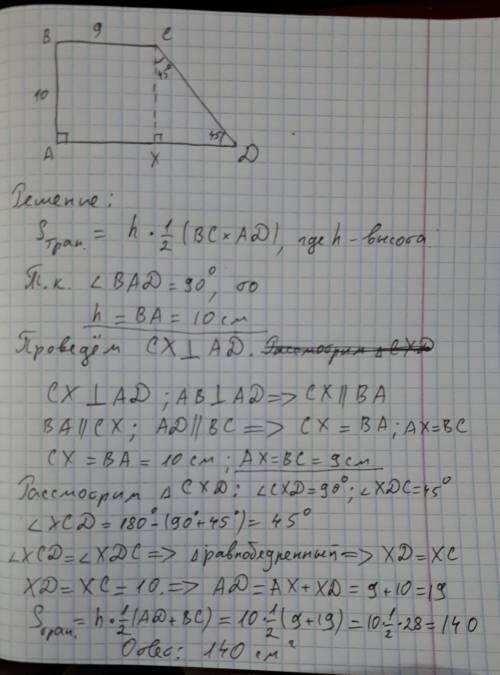 B 9 C
45°
10
45°
A X D
Решение:
Sтрап. = h · 1/2 (BC × AD), где h - высота.
Т.к. ∠BAD = 90°, то
h = BA = 10 см
Проведём CX ⊥ AD. Рассмотрим △CXD
CX ⊥ AD ; AB ⊥ AD => CX ∥ BA
BA ∥ CX; AD ∥ BC => CX = BA; AX = BC
CX = BA = 10 см ; AX = BC = 9 см
Рассмотрим △CXD: ∠CXD = 90°; ∠XDC = 45°
∠XCD = 180° - (90° + 45°) = 45°
∠XCD = ∠XDC => △равнобедренный => XD = XC
XD = XC = 10. => AD = AX + XD = 9 + 10 = 19
Sтрап. = h · 1/2 (AD + BC) = 10 · 1/2 (9 + 19) = 10 · 1/2 · 28 = 140
Ответ: 140 см²